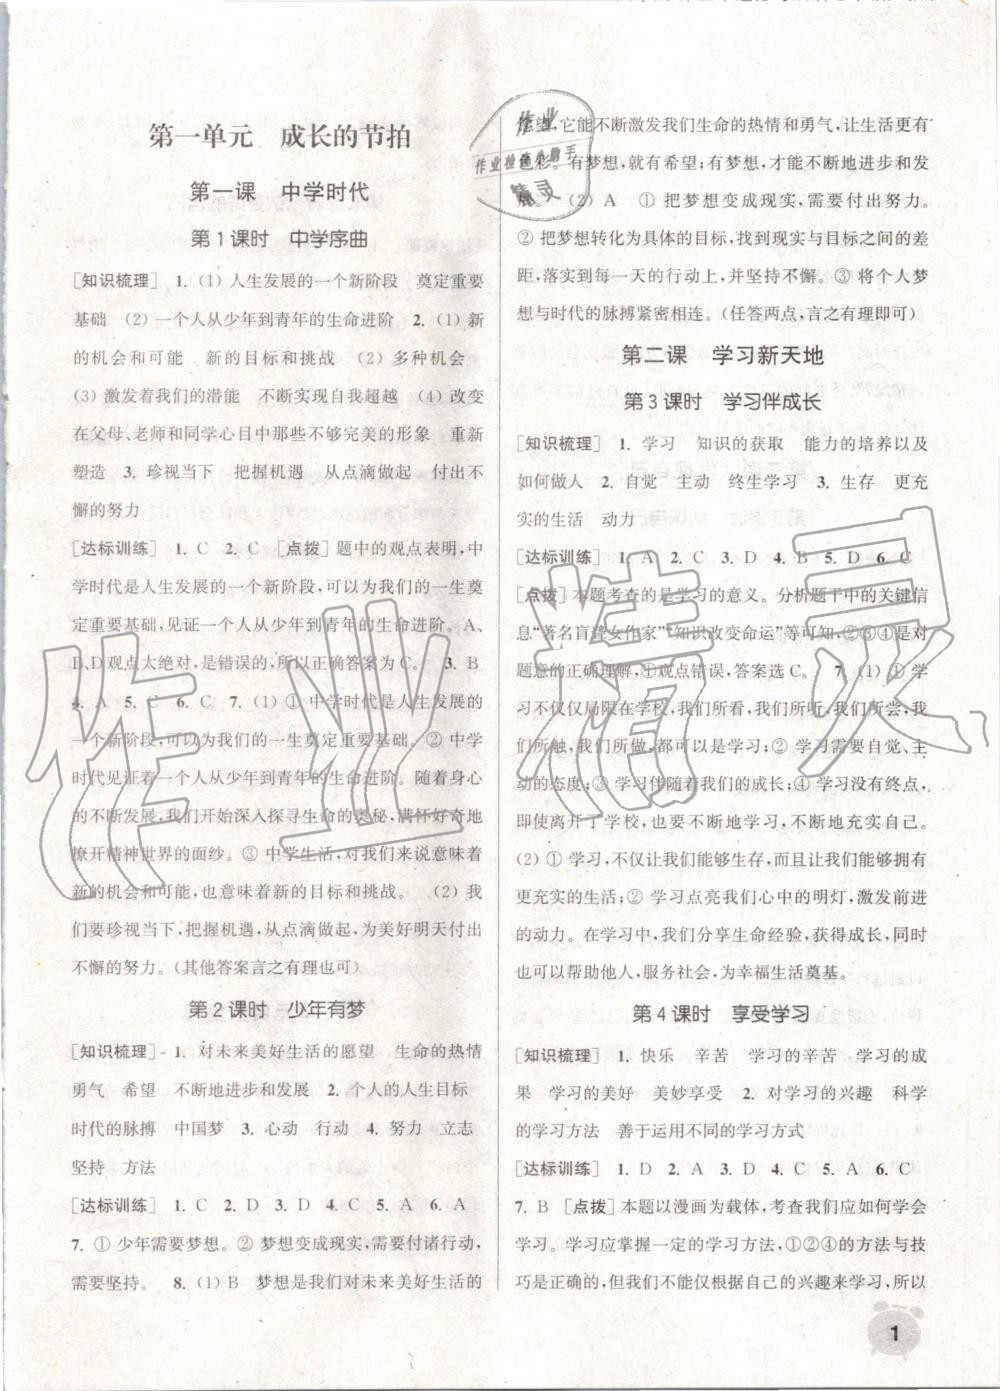 第一单元　成长的节拍
第一课　中学时代
第1课时　中学序曲
[知识梳理]　1. (1) 人生发展的一个新阶段　奠定重要
基础　(2) 一个人从少年到青年的生命进阶　2. (1) 新
的机会和可能　新的目标和挑战　(2) 多种机会
(3) 激发着我们的潜能　不断实现自我超越　(4) 改变
在父母、老师和同学心目中那些不够完美的形象　重新
塑造　3. 珍视当下　把握机遇　从点滴做起　付出不
懈的努力
[达标训练]　1. C　2. C　[点拨] 题中的观点表明,中
学时代是人生发展的一个新阶段,可以为我们的一生奠
定重要基础,见证一个人从少年到青年的生命进阶。A、
B、D观点太绝对,是错误的,所以正确答案为C。　3. B
4. A　5. C　6. C　7. (1) ① 中学时代是人生发展的
一个新阶段,可以为我们的一生奠定重要基础。② 中学
时代见证着一个人从少年到青年的生命进阶。随着身心
的不断发展,我们开始深入探寻生命的奥秘,满怀好奇地
撩开精神世界的面纱。③ 中学生活,对我们来说意味着
新的机会和可能,也意味着新的目标和挑战。　(2) 我
们要珍视当下,把握机遇,从点滴做起,为美好明天付出
不懈的努力。(其他答案言之有理也可)
第2课时　少年有梦
[知识梳理]　1. 对未来美好生活的愿望　生命的热情
勇气　希望　不断地进步和发展　2. 个人的人生目标
时代的脉搏　中国梦　3. 心动　行动　4. 努力　立志
坚持　方法
[达标训练]　1. C　2. D　3. D　4. A　5. A　6. A
7. ① 少年需要梦想。② 梦想变成现实,需要付诸行动,
需要坚持。　8. (1) B　梦想是我们对未来美好生活的
愿望,它能不断激发我们生命的热情和勇气,让生活更有
色彩。有梦想,就有希望;有梦想,才能不断地进步和发
展。　(2) A　① 把梦想变成现实,需要付出努力。
② 把梦想转化为具体的目标,找到现实与目标之间的差
距,落实到每一天的行动上,并坚持不懈。③ 将个人梦
想与时代的脉搏紧密相连。(任答两点,言之有理即可)
第二课　学习新天地
第3课时　学习伴成长
[知识梳理]　1. 学习　知识的获取　能力的培养以及
如何做人　2. 自觉　主动　终生学习　3. 生存　更充
实的生活　动力
[达标训练]　1. A　2. C　3. D　4. B　5. D　6. C
[点拨] 本题考查的是学习的意义。分析题干中的关键信
息“著名盲聋女作家”“知识改变命运”等可知,②③④是对
题意的正确理解,①观点错误,答案选C。　7. (1) ① 学
习不仅仅局限在学校,我们所看,我们所听,我们所尝,我
们所触,我们所做,都可以是学习;② 学习需要自觉、主
动的态度;③ 学习伴随着我们的成长;④ 学习没有终点,
即使离开了学校,也要不断地学习,不断地充实自己。
(2) ① 学习,不仅让我们能够生存,而且让我们能够拥有
更充实的生活;② 学习点亮我们心中的明灯,激发前进
的动力。在学习中,我们分享生命经验,获得成长,同时
也可以帮助他人,服务社会,为幸福生活奠基。
第4课时　享受学习
[知识梳理]　1. 快乐　辛苦　学习的辛苦　学习的成
果　学习的美好　美妙享受　2. 对学习的兴趣　科学
的学习方法　善于运用不同的学习方式
[达标训练]　1. D　2. A　3. D　4. A　5. A　6. C
7. B　[点拨] 本题以漫画为载体,考查我们应如何学会
学习。学习应掌握一定的学习方法,①②④的方法与技
巧是正确的,但我们不能仅根据自己的兴趣来学习,所以
1
作业
作业检查小助手
精灵
作业精灵